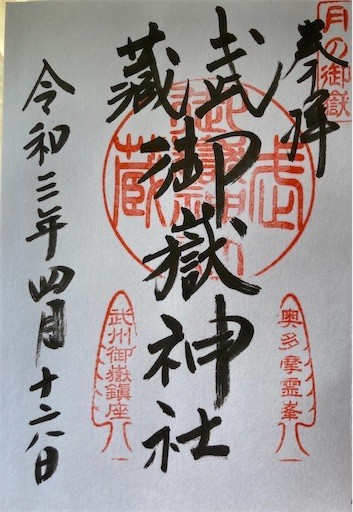 月の御嶽
奉拝
奥多摩霊峯
武蔵
御嶽神社
武州御嶽鎮座
令和三年四月十六日